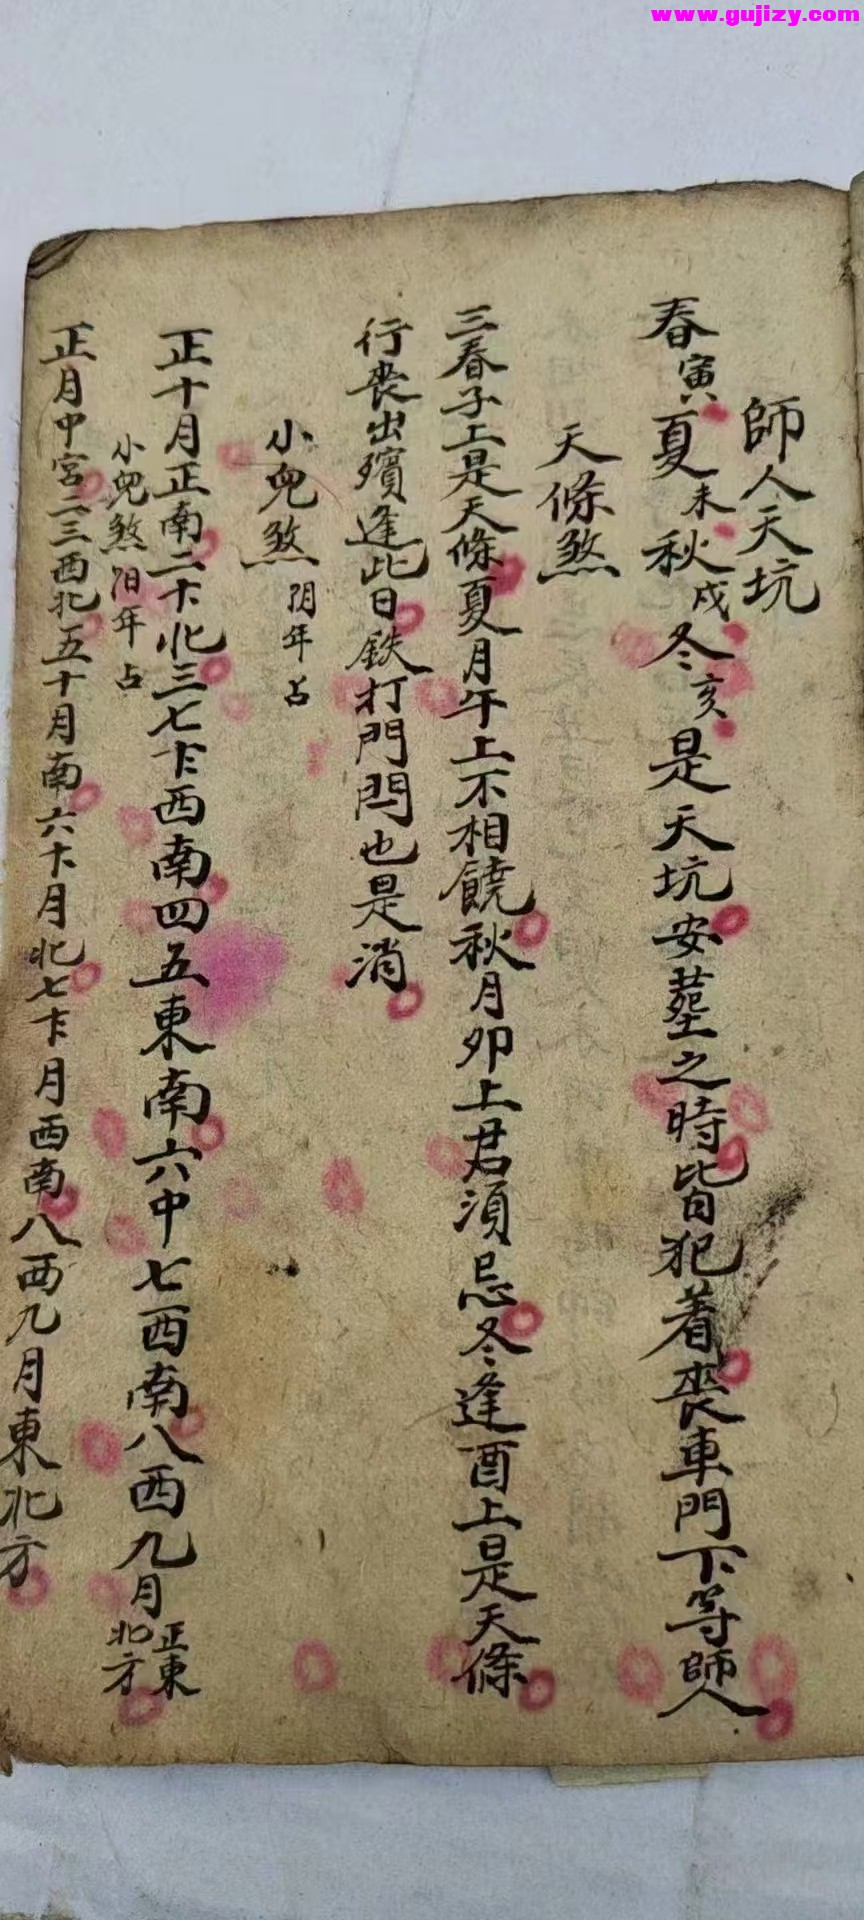 www.gujizy.com
師人天坑
春寅夏未秋戌冬亥是天坑安塟之時皆犯着丧車門下等師人
天條煞
三春子上是天條夏月午上不相饒秋月卯上君須忌冬逢酉上是天條
行丧出殯逢此日鉄打門閂也是消
小兒煞 阴年占
正十月正南二十北三七卞西南四五東南六中七西南八西九月正東北方
小兒煞 阳年占
正月中宮二三西北五十月南六十月北七卞月西南八西九月東北方